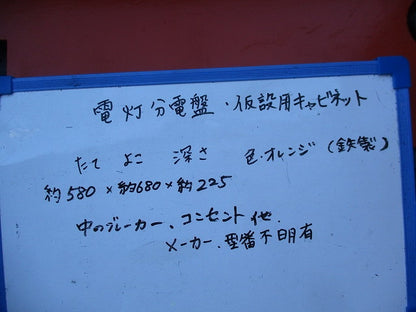 電灯分電盤・仮設用キャビネット
たて よこ 深さ 色・オレンジ(鉄製)
約580×約680×約225
中のブレーカー、コンセント他.
メーカー、型番不明有